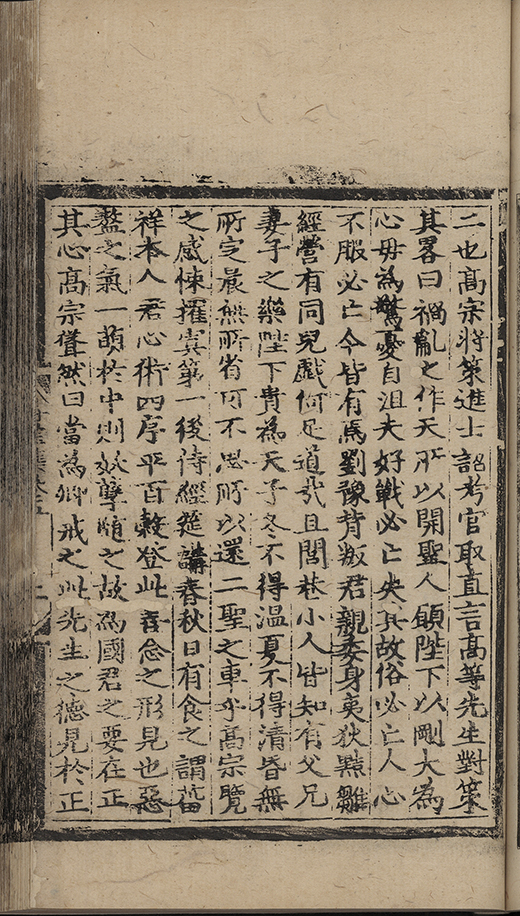 二也高宗將策進士詔考官取直言高等先生對策
其畧曰禍亂之作天所以開聖人願陛下以剛大為
心毋為驚憂自沮夫好戰必亡失其故俗必亡人心
不服必亡今皆有焉劉豫背叛君親委身夷狄黠雛
經營有同兒戲何足道哉且閭巷小人皆知有父兄
妻子之樂陛下貴為天子冬不得溫夏不得清昏無
所定晨無所省可不思所以還二聖之車乎高宗覽
之感悚擢寘第一後侍經筵講春秋日有食之謂菑
祥本人君心術四序平百穀登此善念之形見也惡
盭之氣一萌於中則妖孽隨之故為國君之要在正
其心高宗聳然曰當為卿戒之此先生之德見於正